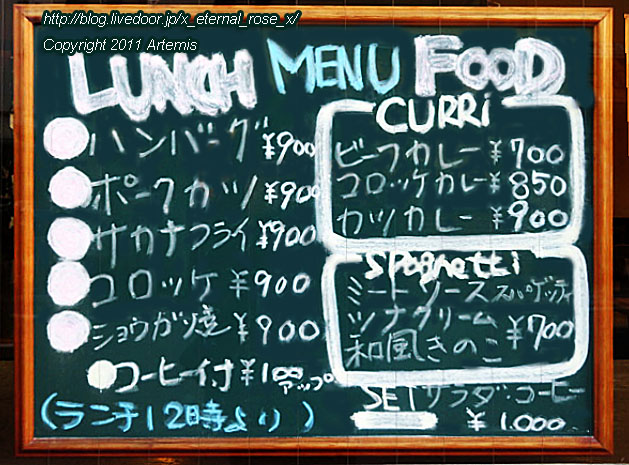 http://blog.livedoor.jp/x_eternal_rose_x/
Copyright 2011 Artemis
LUNCH MENU FOOD
ハンバーグ ¥900
ポークカツ ¥900
サカナフライ ¥900
コロッケ ¥900
ショウガ焼 ¥900
コーヒー付 ¥100アップ
(ランチ12時より)
CURRi
ビーフカレー ¥700
コロッケカレー ¥850
カツカレー ¥900
Spaghetti
ミートソーススパゲッティ
ツナクリーム ¥700
和風きのこ
SETサラダ・コーヒー
¥1.000